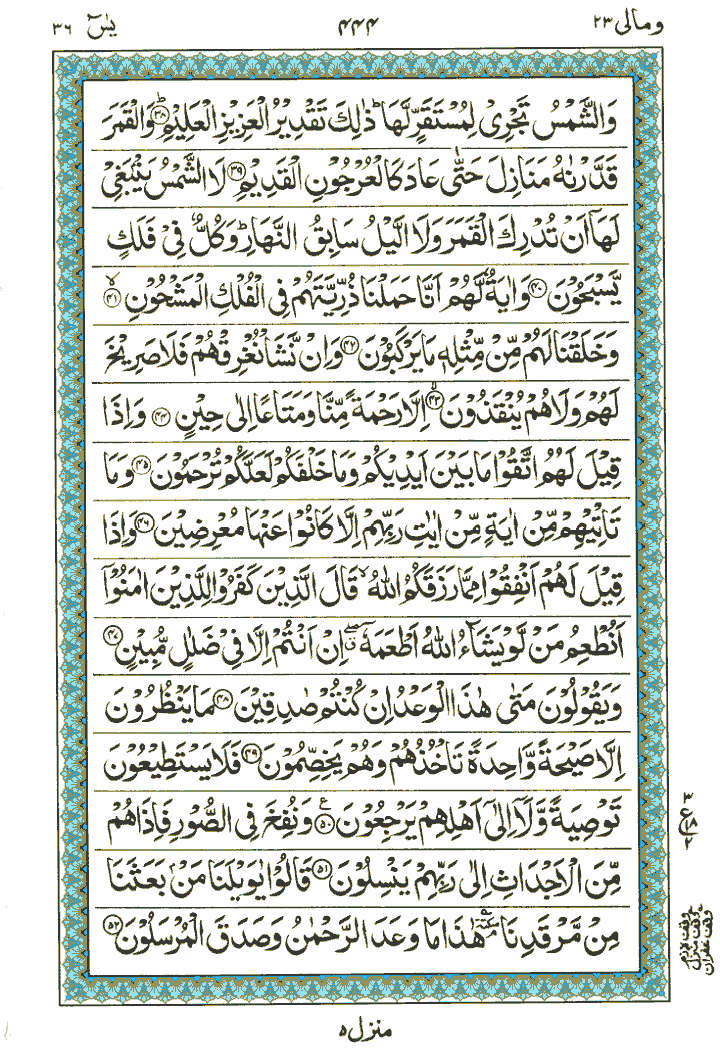 ومالی ۲۳ ۴۴۴ یٰسٓ ۳۶
وَالشَّمْسُ تَجْرِیْ لِمُسْتَقَرٍّ لَّهَا ؕ ذٰلِكَ تَقْدِیْرُ الْعَزِیْزِ الْعَلِیْمِ ۳۸ؕ وَالْقَمَرَ
قَدَّرْنٰهُ مَنَازِلَ حَتّٰی عَادَ كَالْعُرْجُوْنِ الْقَدِیْمِ ۳۹ لَا الشَّمْسُ یَنْۢبَغِیْ
لَهَاۤ اَنْ تُدْرِكَ الْقَمَرَ وَلَا الَّیْلُ سَابِقُ النَّهَارِ ؕ وَكُلٌّ فِیْ فَلَكٍ
یَّسْبَحُوْنَ ۴۰ وَاٰیَةٌ لَّهُمْ اَنَّا حَمَلْنَا ذُرِّیَّتَهُمْ فِی الْفُلْكِ الْمَشْحُوْنِ ۴۱ۙ
وَخَلَقْنَا لَهُمْ مِّنْ مِّثْلِهٖ مَا یَرْكَبُوْنَ ۴۲ وَاِنْ نَّشَاْ نُغْرِقْهُمْ فَلَا صَرِیْخَ
لَهُمْ وَلَا هُمْ یُنْقَذُوْنَ ۴۳ۙ اِلَّا رَحْمَةً مِّنَّا وَمَتَاعًا اِلٰی حِیْنٍ ۴۴ وَاِذَا
قِیْلَ لَهُمُ اتَّقُوْا مَا بَیْنَ اَیْدِیْكُمْ وَمَا خَلْفَكُمْ لَعَلَّكُمْ تُرْحَمُوْنَ ۴۵ وَمَا
تَاْتِیْهِمْ مِّنْ اٰیَةٍ مِّنْ اٰیٰتِ رَبِّهِمْ اِلَّا كَانُوْا عَنْهَا مُعْرِضِیْنَ ۴۶ وَاِذَا
قِیْلَ لَهُمْ اَنْفِقُوْا مِمَّا رَزَقَكُمُ اللّٰهُ ۙ قَالَ الَّذِیْنَ كَفَرُوْا لِلَّذِیْنَ اٰمَنُوْۤا
اَنُطْعِمُ مَنْ لَّوْ یَشَآءُ اللّٰهُ اَطْعَمَهٗۤ ۖ اِنْ اَنْتُمْ اِلَّا فِیْ ضَلٰلٍ مُّبِیْنٍ ۴۷
وَیَقُوْلُوْنَ مَتٰی هٰذَا الْوَعْدُ اِنْ كُنْتُمْ صٰدِقِیْنَ ۴۸ مَا یَنْظُرُوْنَ
اِلَّا صَیْحَةً وَّاحِدَةً تَاْخُذُهُمْ وَهُمْ یَخِصِّمُوْنَ ۴۹ فَلَا یَسْتَطِیْعُوْنَ
تَوْصِیَةً وَّلَاۤ اِلٰۤی اَهْلِهِمْ یَرْجِعُوْنَ ۵۰ ع وَنُفِخَ فِی الصُّوْرِ فَاِذَا هُمْ
مِّنَ الْاَجْدَاثِ اِلٰی رَبِّهِمْ یَنْسِلُوْنَ ۵۱ قَالُوْا یٰوَیْلَنَا مَنْۢ بَعَثَنَا
مِنْ مَّرْقَدِنَا ۘ هٰذَا مَا وَعَدَ الرَّحْمٰنُ وَصَدَقَ الْمُرْسَلُوْنَ ۵۲
۳
ع ۱۸
۲
وقف لازم
وقف منزل
وقف غفران
منزل ۵